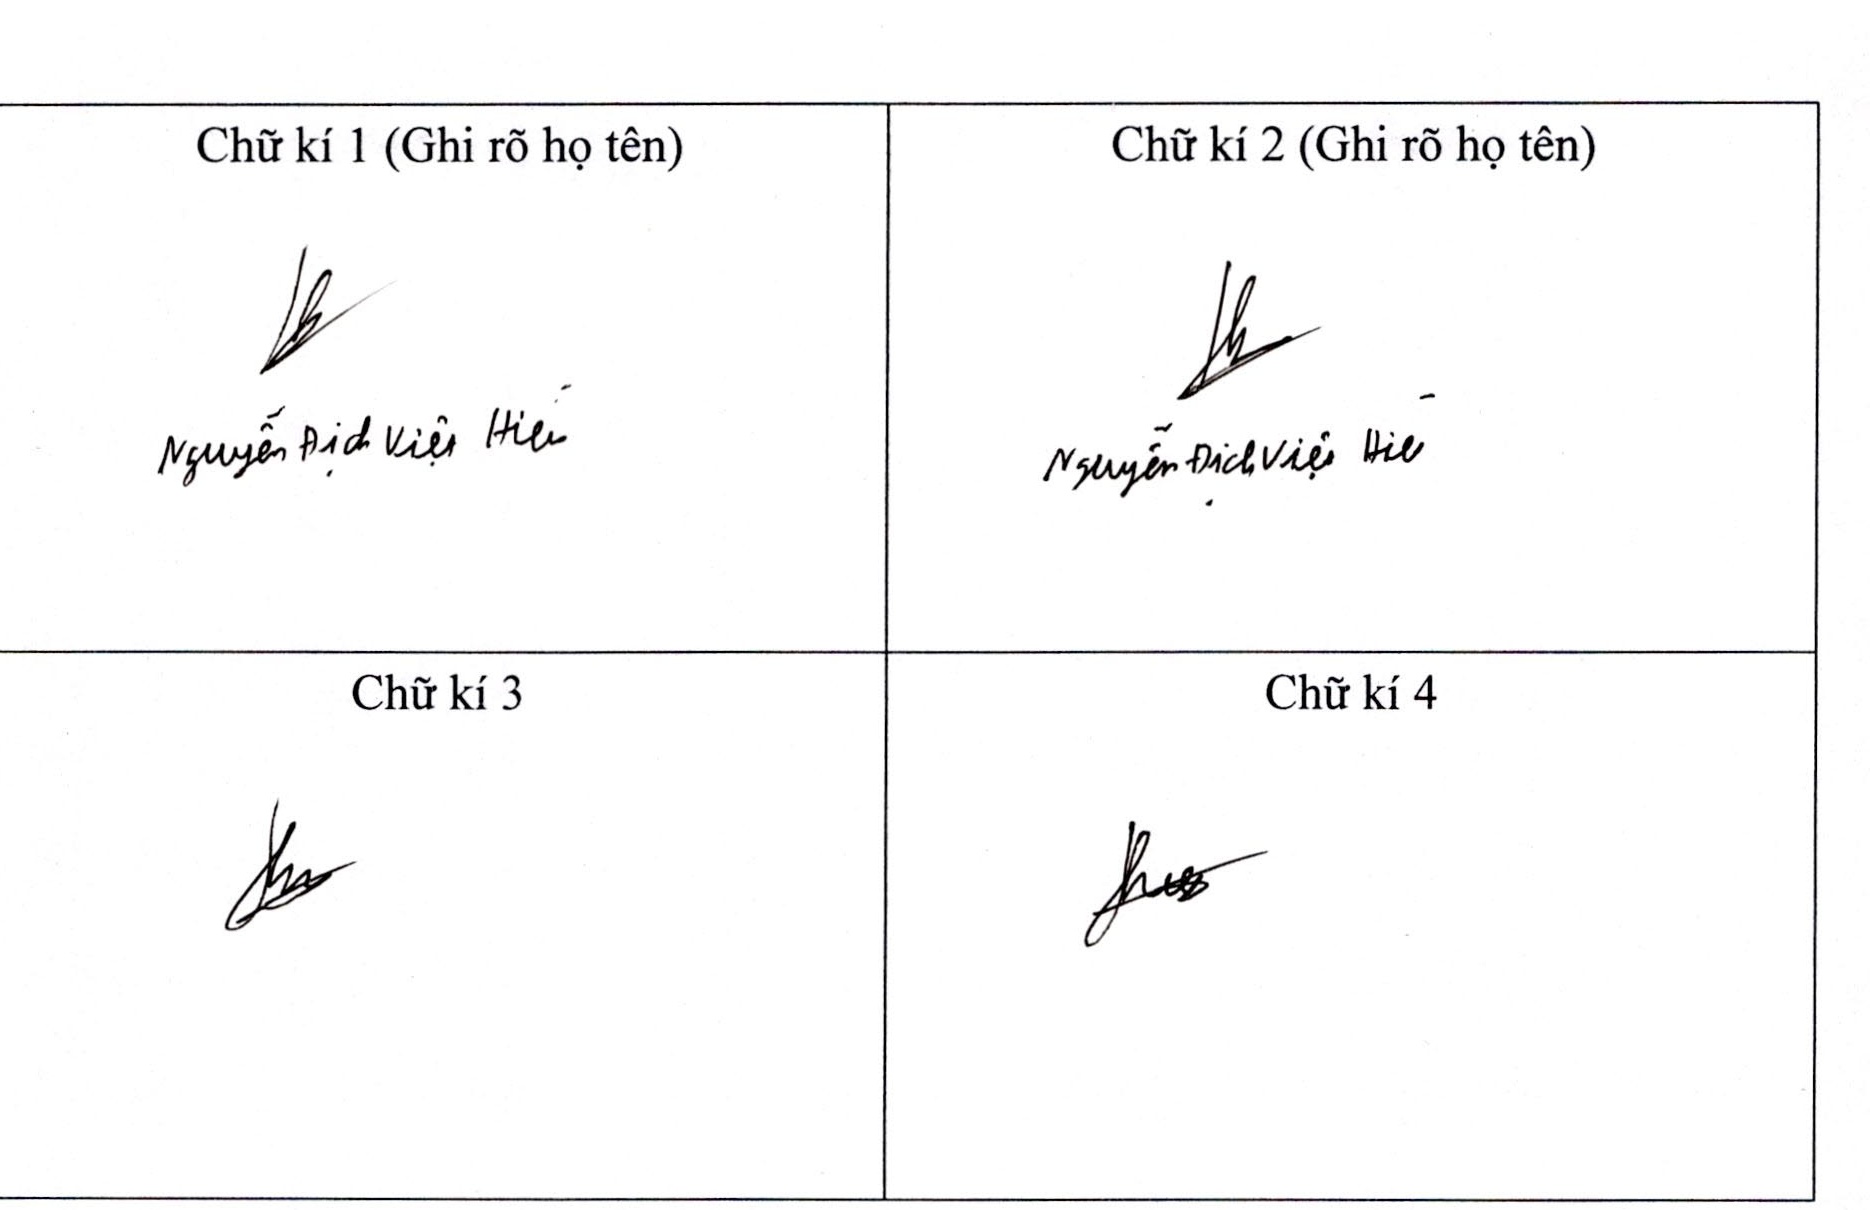 Chữ kí 1 (Ghi rõ họ tên)
Chữ kí 2 (Ghi rõ họ tên)
Nguyễn Địch Việt
Nguyễn Địch Việt
Chữ kí 3
Chữ kí 4